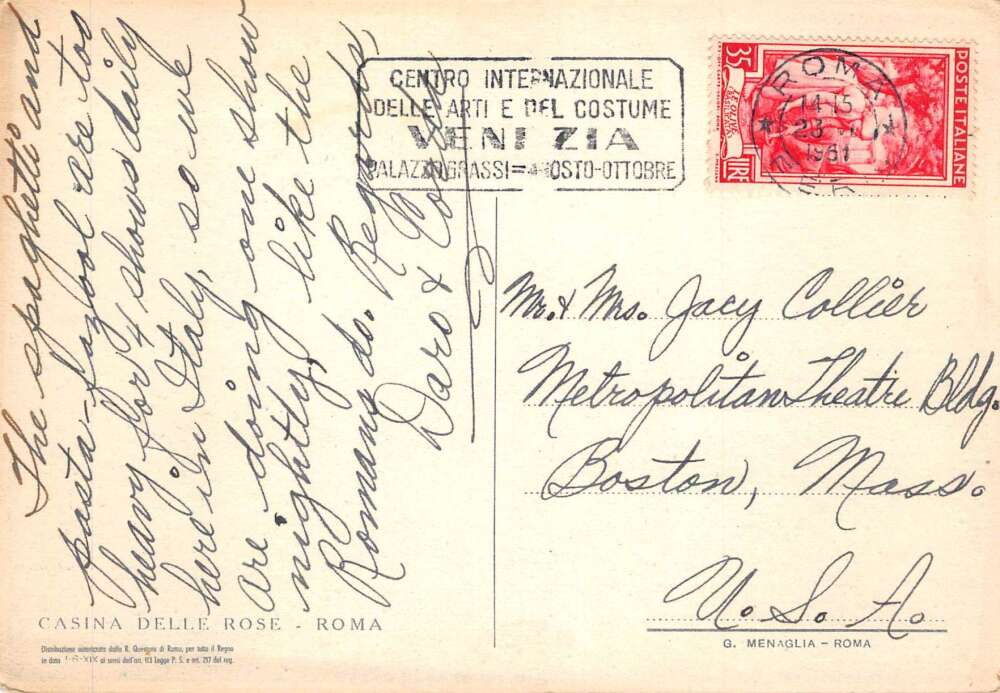 The spaghetti and
pasta-fazool are too
heavy for 4 shows daily
here in Italy, so we
are doing one show
nightly, like the
Romans do. Regards,
Daro &
CENTRO INTERNAZIONALE
DELLE ARTI E DEL COSTUME
VENEZIA
PALAZZO GRASSI = AGOSTO-OTTOBRE
35
LIRE
POSTE ITALIANE
ROMA
14-15
23
1951
Mr. & Mrs. Jacy Collier
Metropolitan Theatre Bldg.
Boston, Mass.
U. S. A.
CASINA DELLE ROSE - ROMA
Distribuzione autorizzata dalla R. Questura di Roma, per tutto il Regno
in data 1-6-XIX ai sensi dell'art. 113 Legge P. S. e art. 217 del reg.
G. MENAGLIA - ROMA